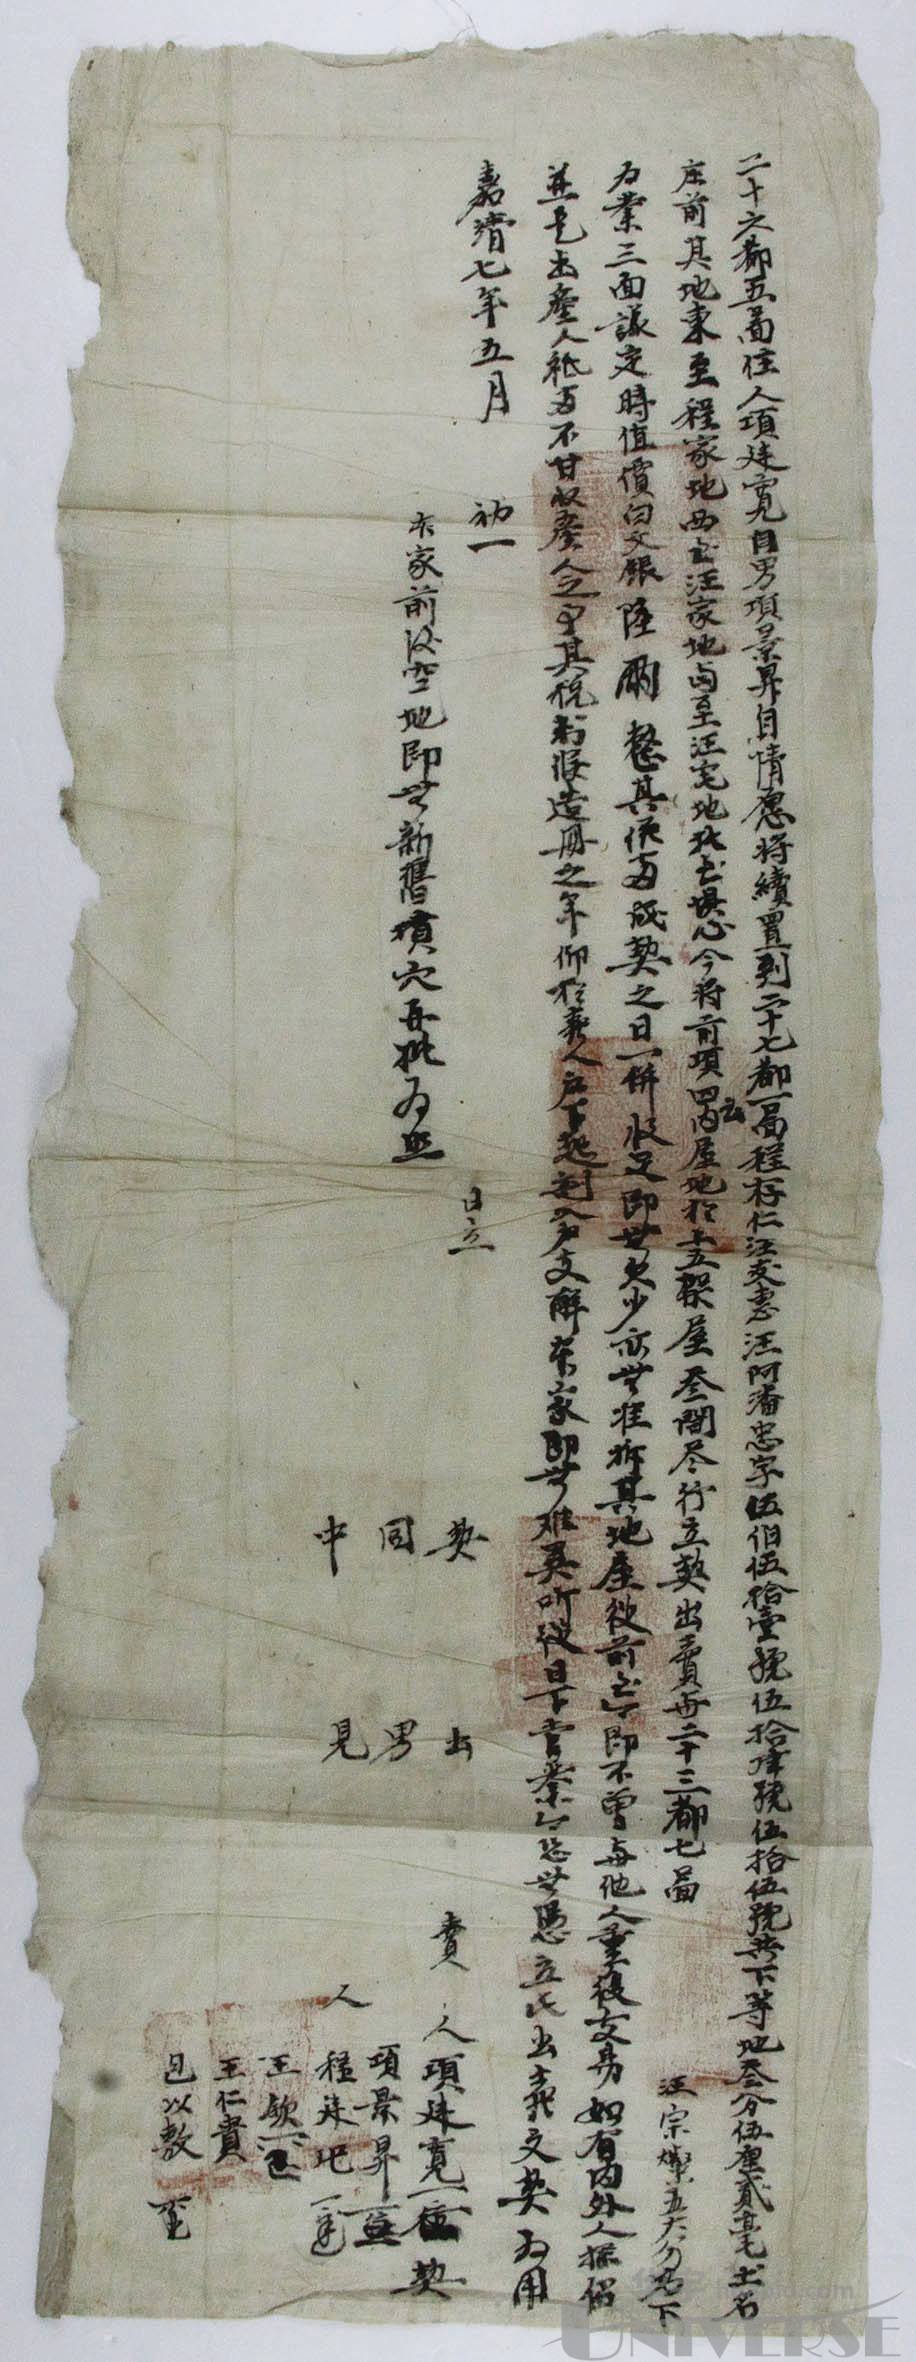 二十六都五啚住人項建寬自男項景昇自情愿將續置到二十七都一啚程存仁汪 汪阿潘忠字伍伯伍拾壹號伍拾肆號伍拾伍號共下等地叁分伍厘貳毫土名
庄前其地東至程家地西至汪家地南至汪宅地北至 心今將前項四至内屋地於上五架屋叁間尽行立契出賣与二十三都七啚汪宗燦五大分名下
为業三面議定時值價白文銀陸兩整其價当成契之日一併收足即無欠少亦無准折其地屋從前至今即不曾与他人重復交易如有内外人攔佔
並是出產人祗当不甘收產人之事其稅粮候造冊之年仰於賣人户下起割入户支解本家即無难異听從日下管業今恐無憑立此出賣文契为用
嘉靖七年五月初一日立
本家前後空地即無新舊墳穴再批为照
契出賣人項建寬 契
同男項景昇
中見人程建
王欽
王仁貴
以敖
UNIVERSE